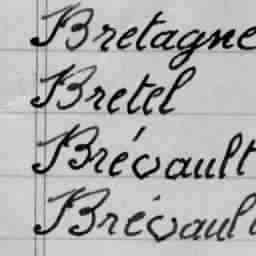 Bretagne
Bretel
Brévault
Brévault